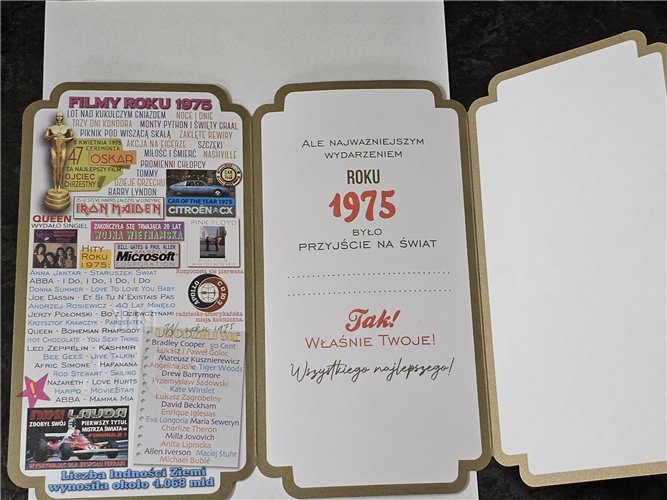 FILMY ROKU 1975
LOT NAD KUKUŁCZYM GNIAZDEM NOCE I DNIE
TRZY DNI KONDORA MONTY PYTHON I ŚWIĘTY GRAAL
PIKNIK POD WISZĄCĄ SKAŁĄ ZAKLĘTE REWIRY
8 KWIETNIA 1975
CEREMONIA
47 OSKAR
ZA NAJLEPSZY FILM
OJCIEC
CHRZESTNY
AKCJA NA EIGERZE SZCZĘKI
MIŁOŚĆ I ŚMIERĆ NASHVILLE
PROMIENNI CHŁOPCY
TOMMY
DZIEJE GRZECHU
BARRY LYNDON
CAR OF THE YEAR 1975
CITROËN CX
IRON MAIDEN
QUEEN
WYDAŁO SINGIEL
ZAKOŃCZYŁA SIĘ TRWAJĄCA 20 LAT
WOJNA WIETNAMSKA
PINK FLOYD
HITY
ROKU
1975:
BILL GATES & PAUL ALLEN
Microsoft
CORPORATION
Rozpoczęła się pierwsza
radziecko-amerykańska
misja kosmiczna
ANNA JANTAR - STARUSZEK ŚWIAT
ABBA - I DO, I DO, I DO, I DO
DONNA SUMMER - LOVE TO LOVE YOU BABY
JOE DASSIN - ET SI TU N'EXISTAIS PAS
ANDRZEJ ROSIEWICZ - 40 LAT MINĘŁO
JERZY POŁOMSKI - BO Z DZIEWCZYNAMI
KRZYSZTOF KRAWCZYK - PAROSTATEK
QUEEN - BOHEMIAN RHAPSODY
HOT CHOCOLATE - YOU SEXY THING
LED ZEPPELIN - KASHMIR
BEE GEES - JIVE TALKIN'
AFRIC SIMONE - HAFANANA
ROD STEWART - SAILING
NAZARETH - LOVE HURTS
HARPO - MOVIESTAR
ABBA - MAMMA MIA
W roku 1975
URODZILI SIĘ
Bradley Cooper 50 Cent
Łukasz i Paweł Golec
Mateusz Kusznierewicz
Angelina Jolie Tiger Woods
Drew Barrymore
Przemysław Sadowski
Kate Winslet
Łukasz Zagrobelny
David Beckham
Enrique Iglesias
Eva Longoria Maria Seweryn
Charlize Theron
Milla Jovovich
Anita Lipnicka
Allen Iverson Maciej Stuhr
Michael Bublé
NIKI LAUDA
ZDOBYŁ SWÓJ PIERWSZY TYTUŁ
MISTRZA ŚWIATA w
FORMULE 1
WYGRYWAJĄC DLA ZESPOŁU FERRARI
Liczba ludności Ziemi
wynosiła około 4.068 mld
ALE NAJWAŻNIEJSZYM
WYDARZENIEM
ROKU
1975
BYŁO
PRZYJŚCIE NA ŚWIAT
Tak!
WŁAŚNIE TWOJE!
Wszystkiego najlepszego!